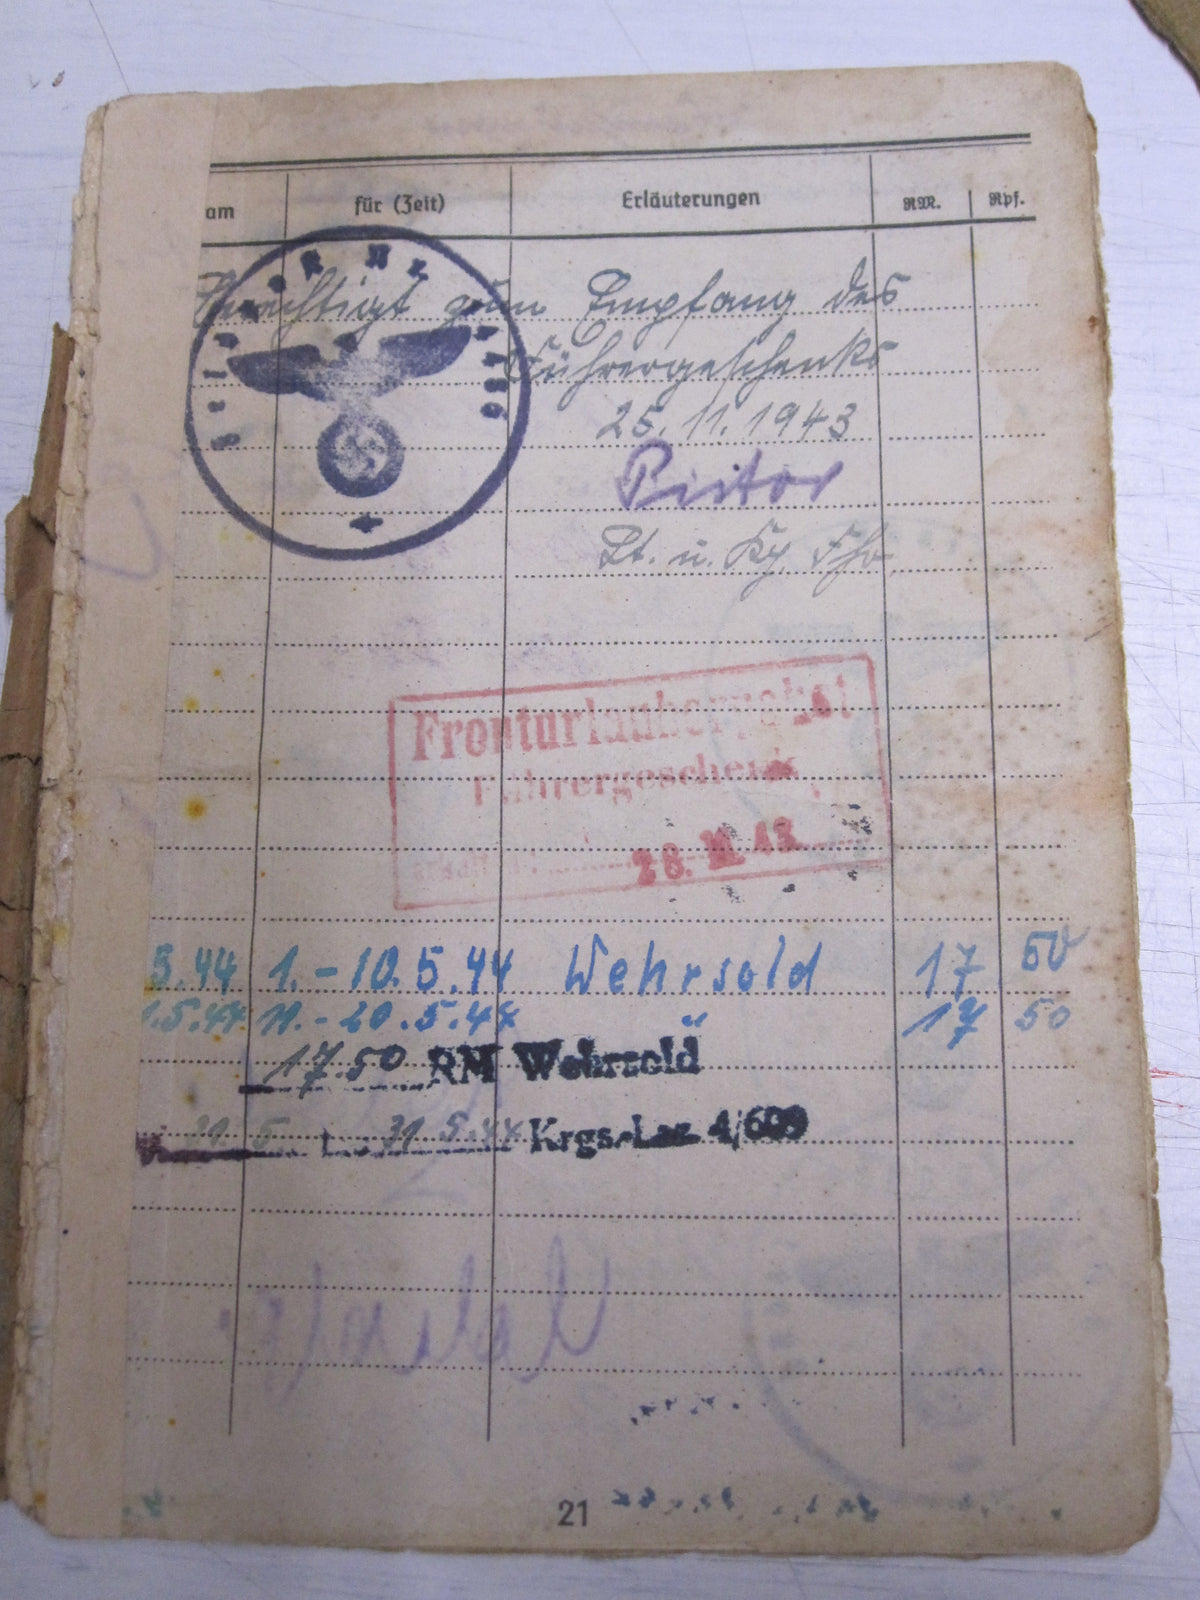 am für (Zeit) Erläuterungen RM. Rpf.
Berechtigt zum Empfang des
Führergeschenks
25.11.1943
Pistor
Lt. u. Kp. Fhr.
Fronturlauberpaket
Führergeschenk
28. XI. 43
5.44 1.-10.5.44 Wehrsold 17 50
1.5.44 11.-20.5.44 " 17 50
17.50 RM Wehrsold
21 5 31 5.44 Krgs.-Laz. 4/609
21